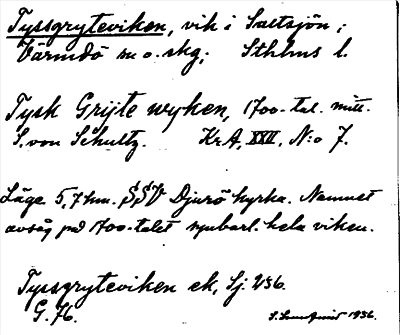 Tyssgryteviken, vik i Saltsjön;
Värmdö sn o. skg; Sthlms l.
Tysk Gryte wyken, 1700-tal. mitt.
S. von Schultz. KrA, XXII, N:o 7.
Läge 5,7 km. SSV Djurö kyrka. Namnet
avsåg på 1700-talet uppenbarl. hela viken.
Tyssgryteviken ek, Sj. 236.
G. 76. 1936.